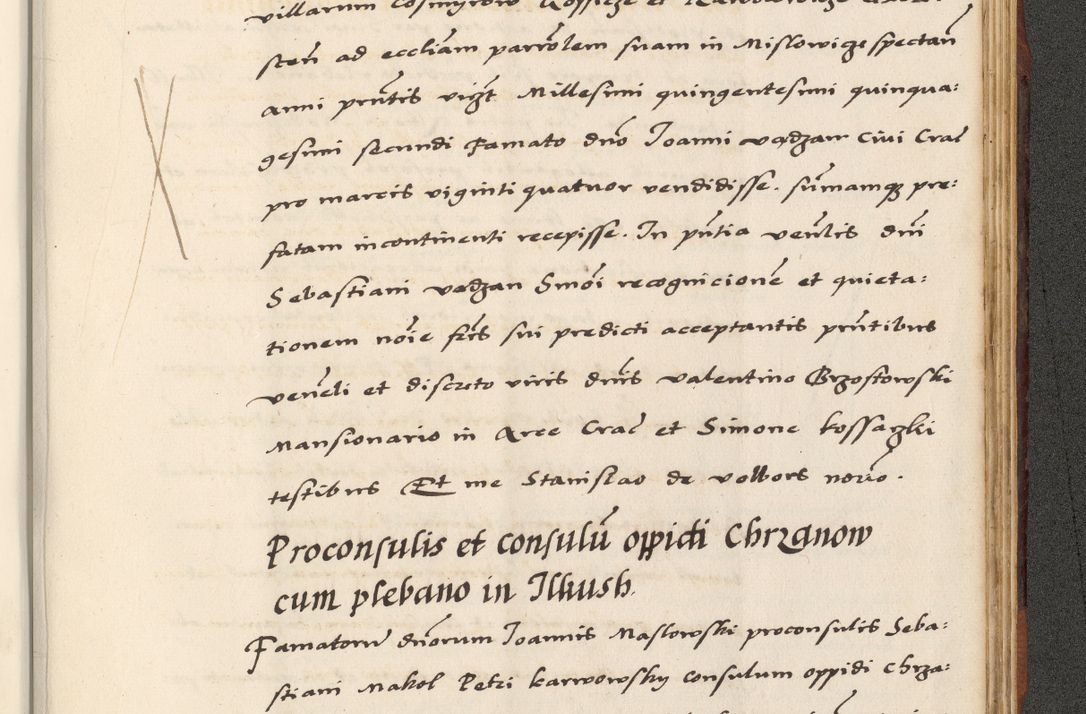 villarum Cosmyrow
sten̄ ad eccl̄iam parr̄olem suam in Mislowicze spectan̄
anni prn̄tis vigt̄ Millesimi quingentesimi quinqua:
gesimi secundi Famato dn̄o Joanni vadzam Civi Crac̄
pro marcis viginti quatuor vendidisse. sum̄amqȝ pre:
fatam incontinenti recepisse. In pn̄tia ven̄lis dn̄i
Sebastiani vadzan Smōi recognicionē et quieta:
tionem nōie frīs sui predicti acceptantis prn̄tibus
ven̄eli et discreto viris dn̄is valentino Brzostowski
Mansionario in Arce Crac̄ et Simone kossarzki
testibus Et me Stanislao de wolbors nor̄io.
Proconsulis et consulū oppidi Chrzanow
cum plebano in Ilkush.
Famatorū dn̄orum Joannis Maslowski proconsulis Seba:
stiani Makol Petri karwowsky consulum oppidi Chrza: